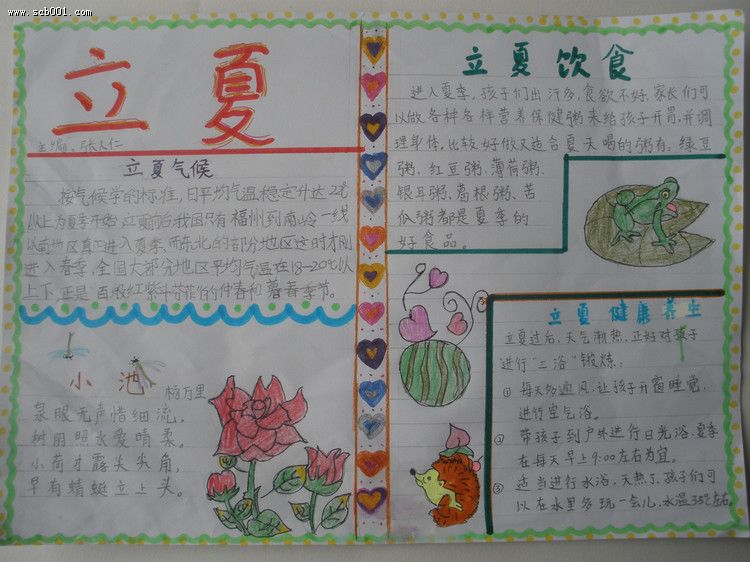 www.scb001.com
立夏
主编：张人仁
立夏气候
按气候学的标准，日平均气温稳定升达22℃
以上为夏季开始，立夏前后，我国只有福州到南岭一线
以南地区真正进入夏季，而东北的部分地区这时才刚
进入春季，全国大部分地区平均气温在18-20℃以
上下，正是"百般红紫斗芳菲"的仲春和暮春季节。
小池
杨万里
泉眼无声惜细流，
树阴照水爱晴柔。
小荷才露尖尖角，
早有蜻蜓立上头。
立夏饮食
进入夏季，孩子们出汗多，食欲不好，家长们可
以做各种各样营养保健粥来给孩子开胃，并调
理身体。比较好做又适合夏天喝的粥有：绿豆
粥、红豆粥、薄荷粥、
银耳粥、葛根粥、苦
瓜粥都是夏季的
好食品。
立夏健康养生
立夏过后，天气渐热，正好对孩子
进行"三浴"锻炼：
① 每天多通风，让孩子开窗睡觉，
进行空气浴。
② 带孩子到户外进行日光浴，夏季
在每天早上9:00左右为宜。
③ 适当进行水浴，天热了，孩子们可
以在水里多玩一会儿，水温35℃左右。